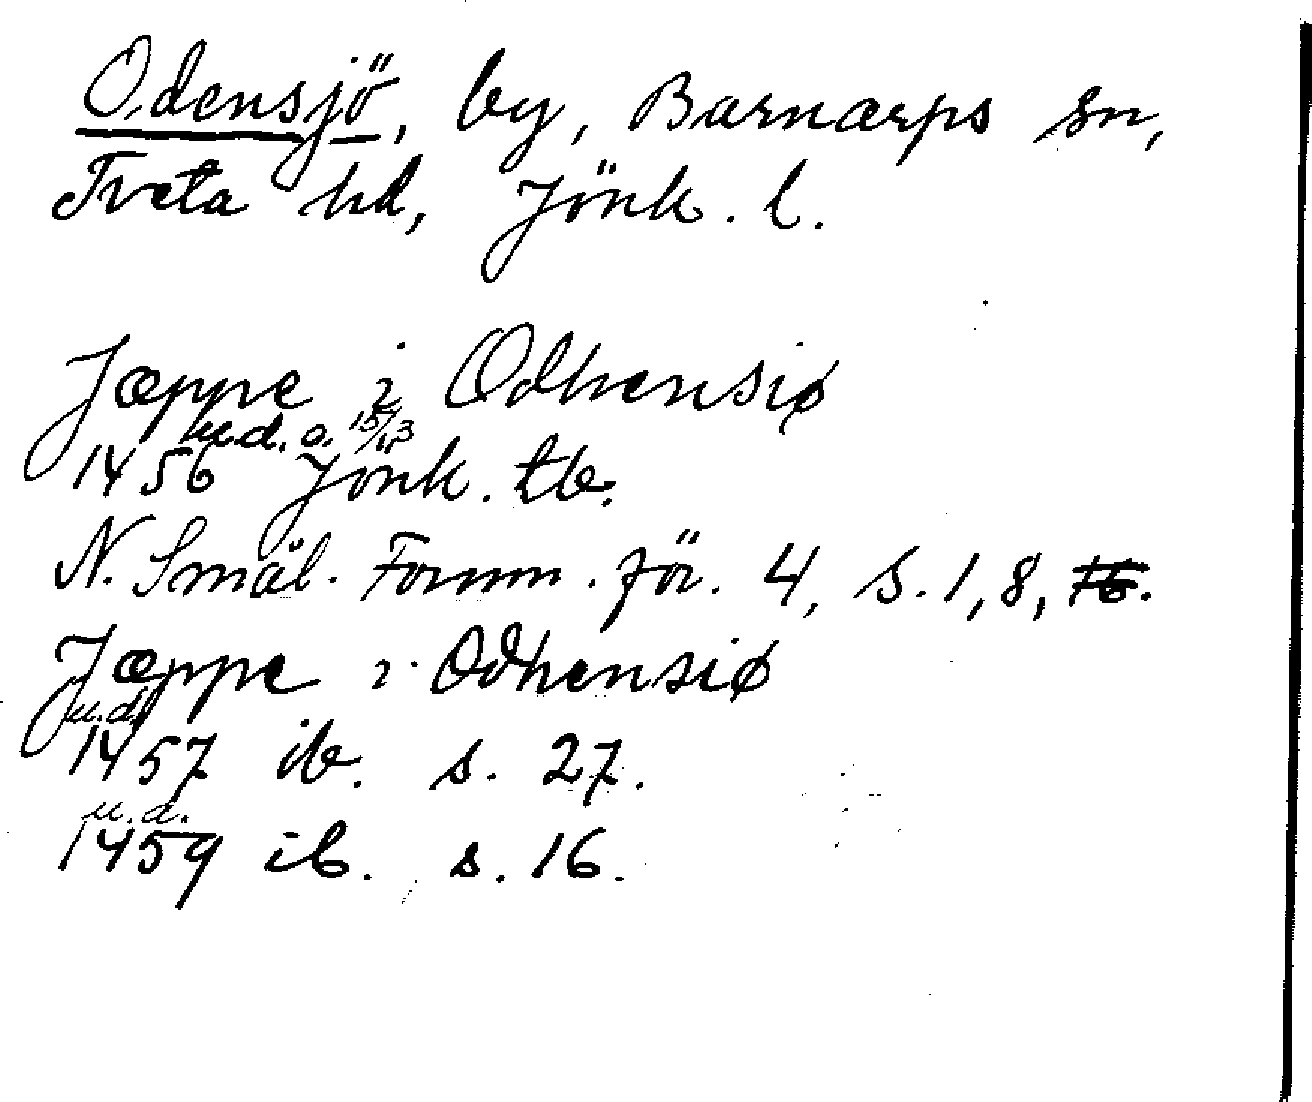 Odensjö, by, Barnarps sn,
Tveta hd, Jönk. l.
Jæppe i Odhensiø
u.d. o. 15/13
1456 Jönk. tb.
N. Smål. Fornm. för. 4, s. 1, 8, 16.
Jæppe i Odhensiø
u.d.
1457 ib. s. 27.
u.d.
1459 ib. s. 16.